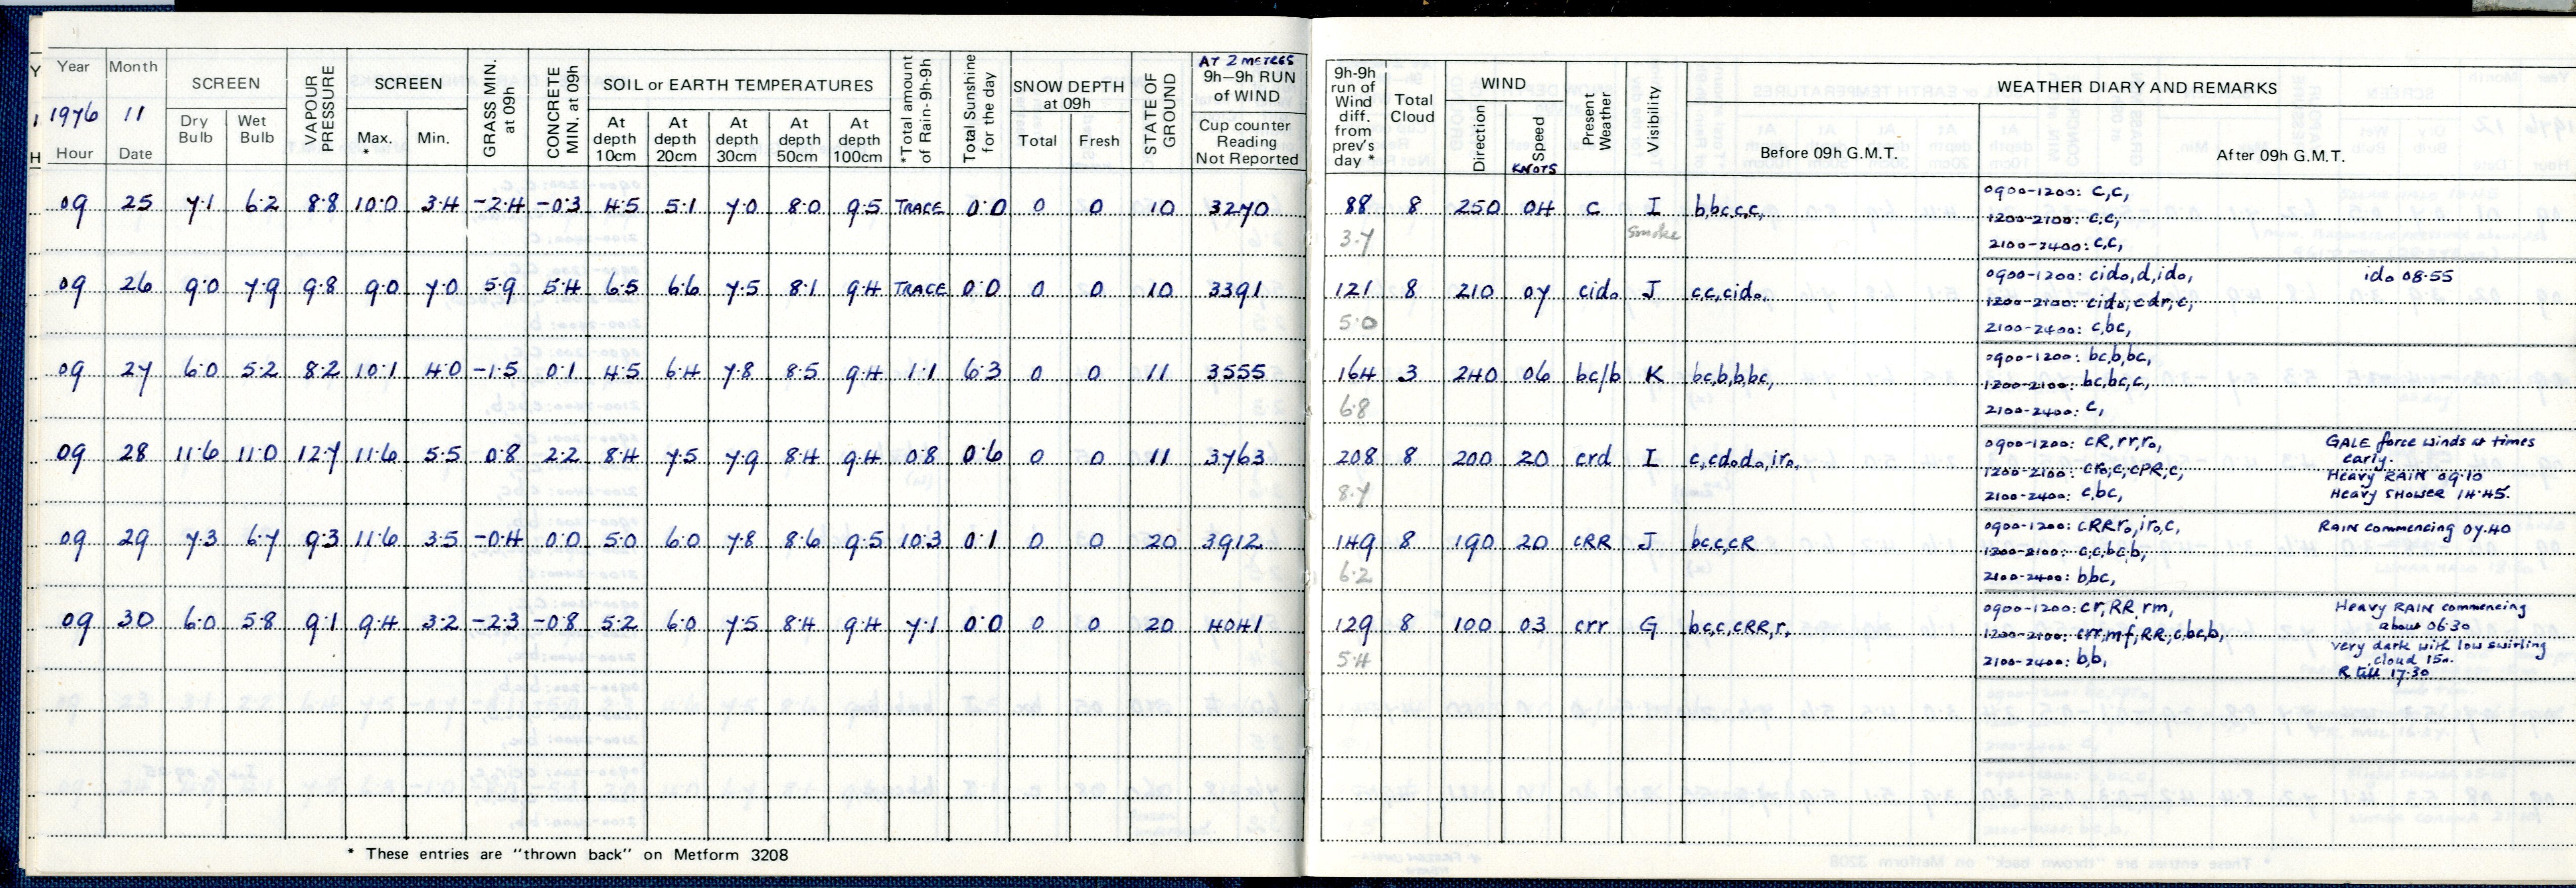 Year Month
1976 11
Hour Date
SCREEN
Dry Bulb Wet Bulb
VAPOUR PRESSURE
SCREEN
Max. * Min.
GRASS MIN. at 09h
CONCRETE MIN. at 09h
SOIL or EARTH TEMPERATURES
At depth 10cm At depth 20cm At depth 30cm At depth 50cm At depth 100cm
*Total amount of Rain-9h-9h
Total Sunshine for the day
SNOW DEPTH at 09h
Total Fresh
STATE OF GROUND
AT 2 METRES
9h—9h RUN of WIND
Cup counter Reading Not Reported
9h-9h run of Wind diff. from prev's day *
Total Cloud
WIND
Direction Speed KNOTS
Present Weather
Visibility
WEATHER DIARY AND REMARKS
Before 09h G.M.T. After 09h G.M.T.
09 25 7.1 6.2 8.8 10.0 3.4 -2.4 -0.3 4.5 5.1 7.0 8.0 9.5 TRACE 0.0 0 0 10 3270 88 8 250 04 c I b,bc,c,c, 0900-1200: c,c,
3.7 Smoke 1200-2100: c,c,
2100-2400: c,c,
09 26 9.0 7.9 9.8 9.0 7.0 5.9 5.4 6.5 6.6 7.5 8.1 9.4 TRACE 0.0 0 0 10 3391 121 8 210 07 cid₀ J c,c,cid₀, 0900-1200: cid₀,d,id₀, id₀ 08.55
5.0 1200-2100: cid₀,cdr,c,
2100-2400: c,bc,
09 27 6.0 5.2 8.2 10.1 4.0 -1.5 0.1 4.5 6.4 7.8 8.5 9.4 1.1 6.3 0 0 11 3555 164 3 240 06 bc/b K bc,b,b,bc, 0900-1200: bc,b,bc,
6.8 1200-2100: bc,bc,c,
2100-2400: c,
09 28 11.6 11.0 12.7 11.6 5.5 0.8 2.2 8.4 7.5 7.9 8.4 9.4 0.8 0.6 0 0 11 3763 208 8 200 20 crd I c,cd₀d₀,ir₀, 0900-1200: cR,rr,r₀, GALE force winds at times early.
8.7 1200-2100: cr₀,c,cPR,c, Heavy RAIN 09.10
2100-2400: c,bc, Heavy SHOWER 14.45.
09 29 7.3 6.7 9.3 11.6 3.5 -0.4 0.0 5.0 6.0 7.8 8.6 9.5 10.3 0.1 0 0 20 3912 149 8 190 20 cRR J bc,c,cR 0900-1200: cRRr₀,ir₀,c, RAIN commencing 07.40
6.2 1200-2100: c,c,bc,b,
2100-2400: b,bc,
09 30 6.0 5.8 9.1 9.4 3.2 -2.3 -0.8 5.2 6.0 7.5 8.4 9.4 7.1 0.0 0 0 20 4041 129 8 100 03 crr G bc,c,cRR,r, 0900-1200: cr,RR,rm, Heavy RAIN commencing about 06.30
5.4 1200-2100: crr,mf,RR,c,bc,b, very dark with low swirling cloud 15h.
2100-2400: b,b, R till 17.30
* These entries are "thrown back" on Metform 3208